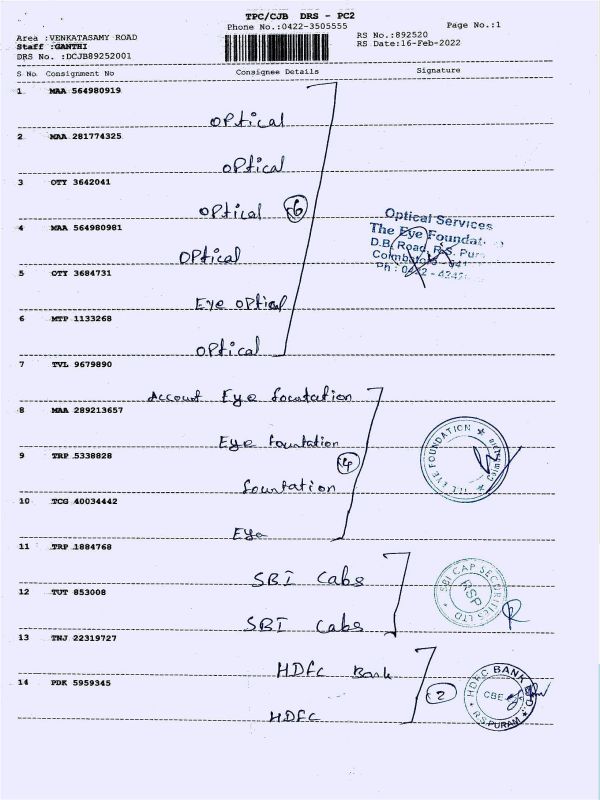 TPC/CJB DRS - PC2
Phone No.:0422-3505555
Page No.:1
Area : VENKATASAMY ROAD
RS No.:892520
Staff :GANTHI
RS Date:16-Feb-2022
DRS No. :DCJB89252001
S No. Consignment No Consignee Details Signature
1 MAA 564980919
OPtical
2 MAA 281774325
OPtical
3 OTY 3642041
OPtical 6
4 MAA 564980981
OPtical
5 OTY 3684731
Eye OPtical
6 MTP 1133268
OPtical
Optical Services
The Eye Foundat
D.B. Road, R.S. Pur
Coimbatore - 641
Ph : 0422 - 4242
7 TVL 9679890
Account Eye fountation
8 MAA 289213657
Eye fountation
9 TRP 5338828
fountation 4
10 TCG 40034442
Eye
EYE FOUNDATION
11 TRP 1884768
SBI Cabs
12 TUT 853008
SBI Cabs
SBI CAP SECURITIES LTD
RSP
13 TNJ 22319727
HDFC Bank
14 PDK 5959345
HDFC 2
HDFC BANK LTD
CBE
R.S.PURAM